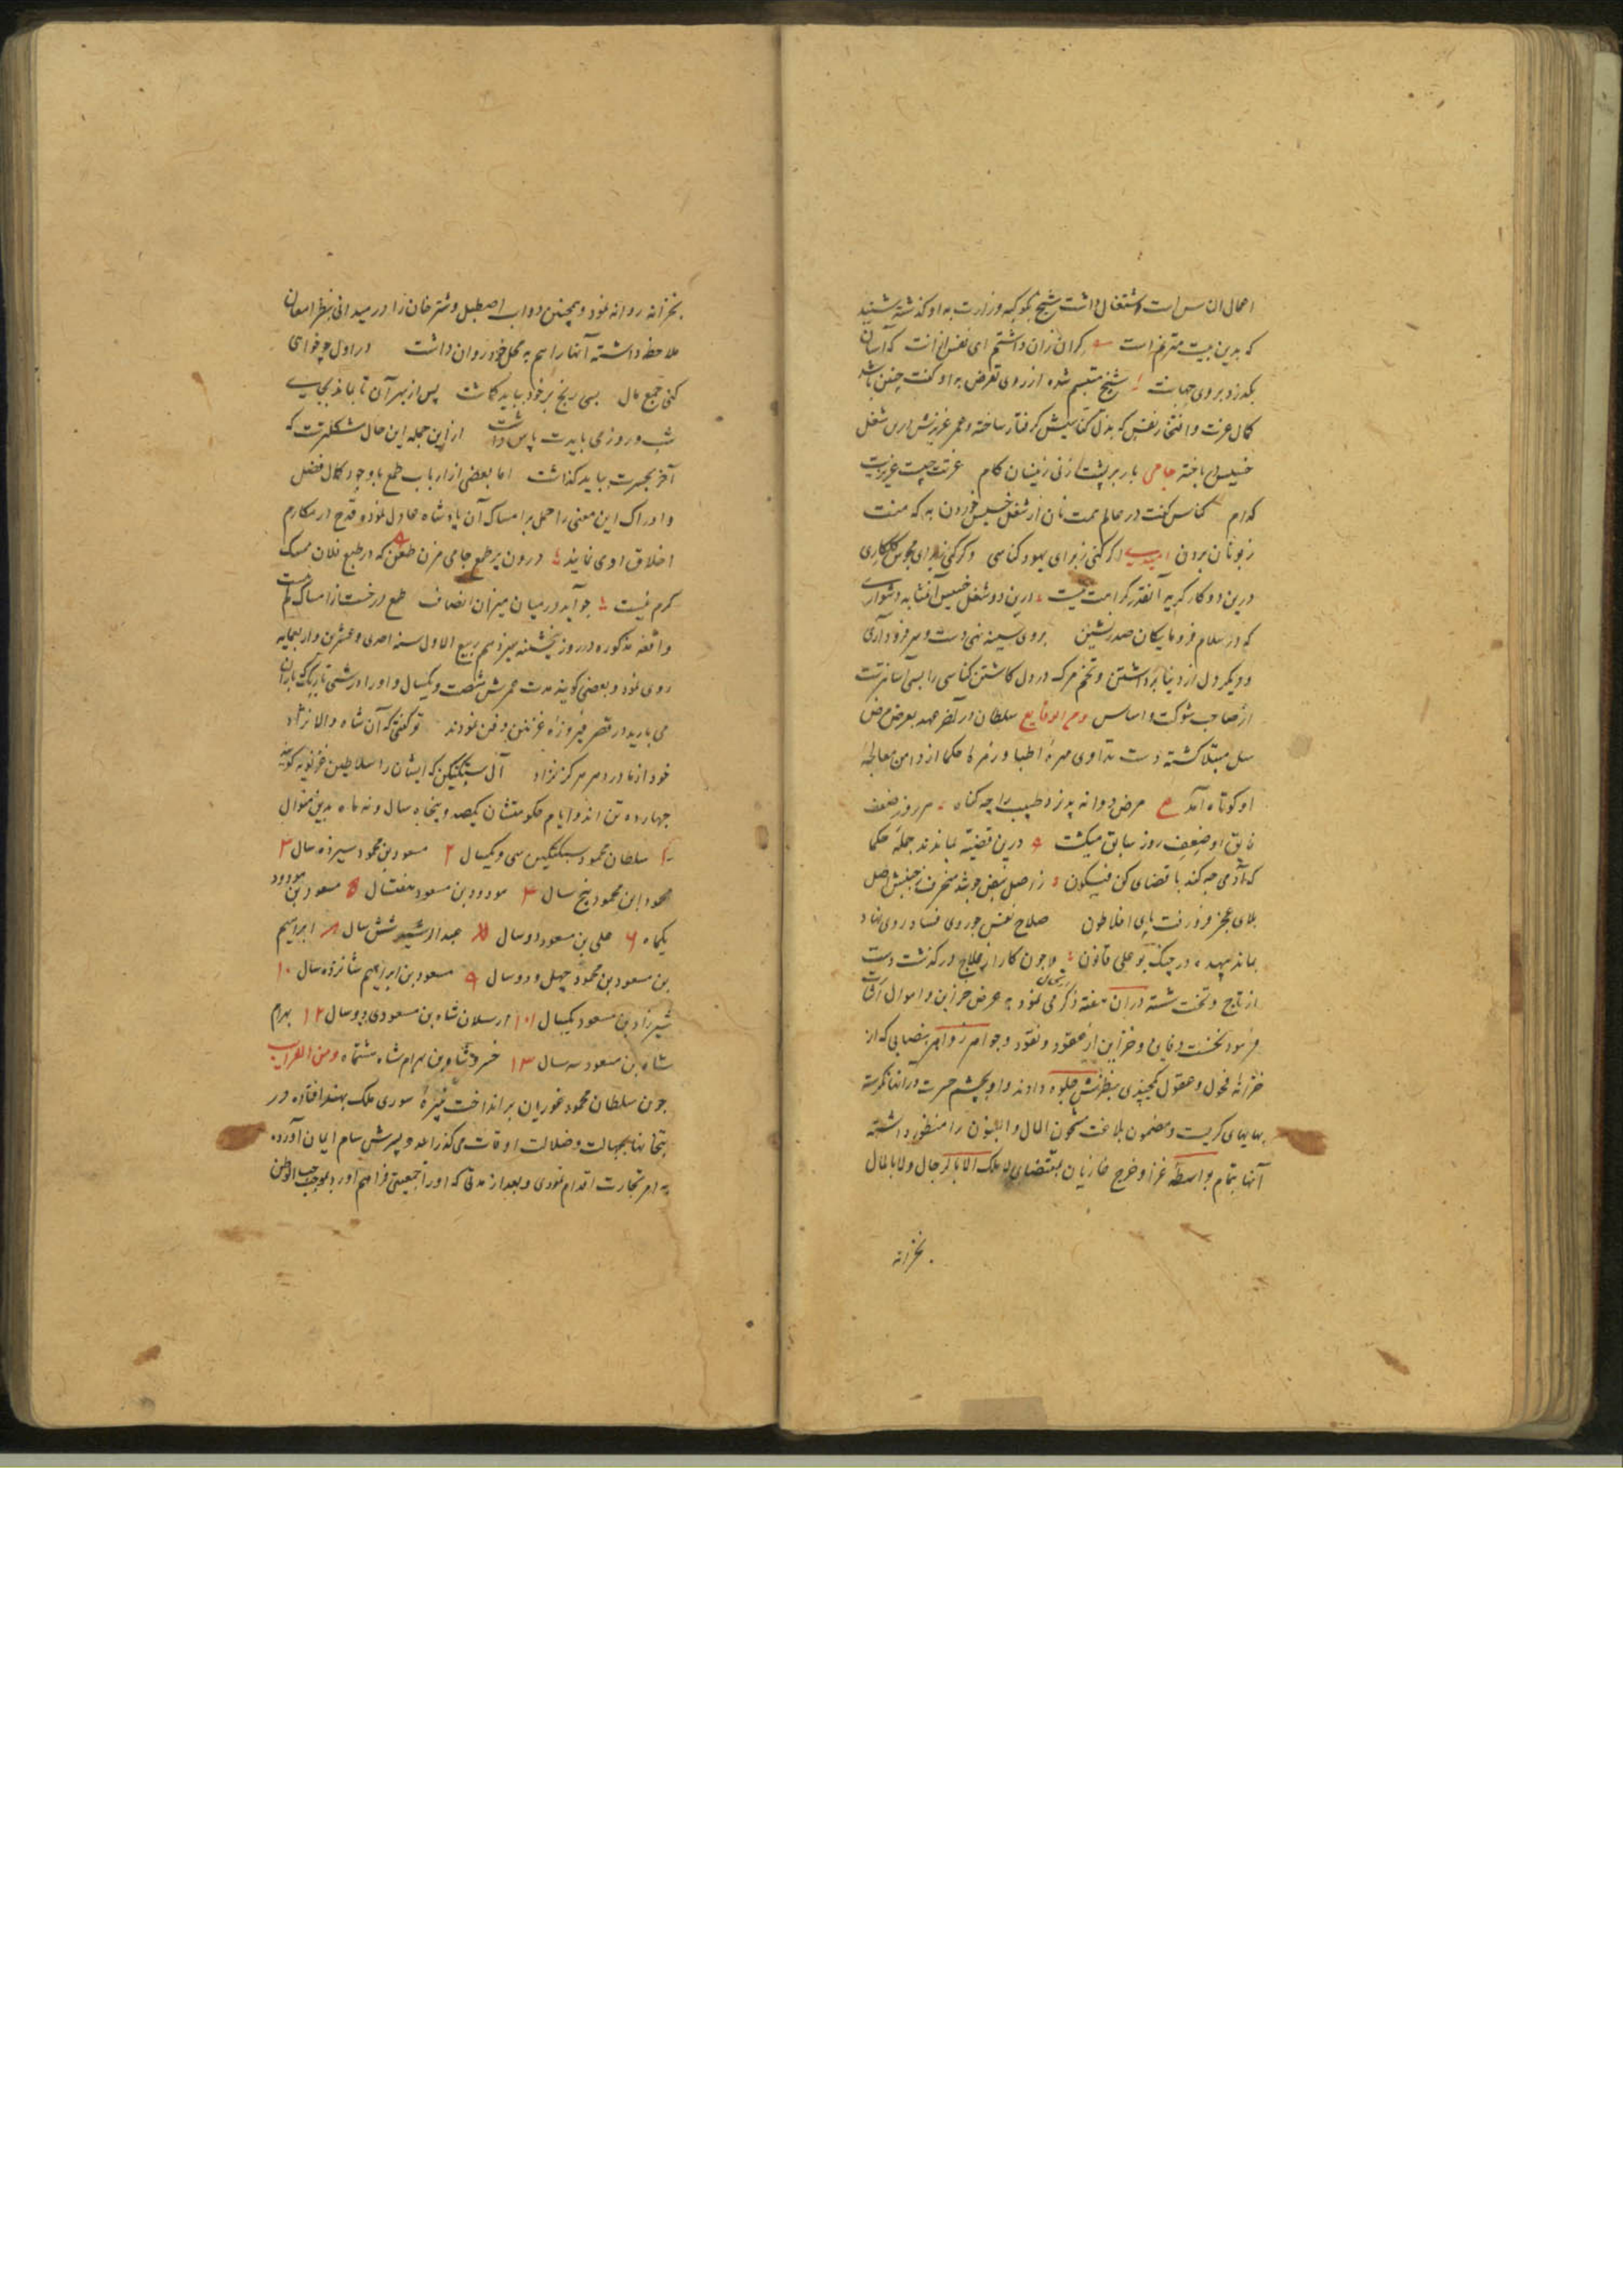 اعمال ان سراست اشتغال داشت شیخ بکوکبه وزارت به او کذشته شنید
که بدین بیت مترنم است کرامی زان داشتم ای نفس ازانت که آسان
بکذرد بروی جهانت شیخ متبسم شده از روی تعرض به او کفت چنین باشد
کمال عزت و افتخار نفس که بذل کناسیش کرفتار ساخته و عمر عزیزش درین شغل
خسیس باخته جامی بار بر پشت زنی زینسان کام عزتت چیست عزیزیت
کدام کناس کفت در عالم همت نان از شغل خسیس خوردن به که منت
زبونان بردن اکر کنی زبرای یهود کناسی و کر کنی زبرای مجوس کلکاری
درین دو کار کریه آنقدر کراهت نیست درین دو شغل خسیس آنمثابه دشواری
که در سلام فرومایکان صدرنشین بروی سینه نهی دست و سر فرود آری
و دیکر دل از دنیا برداشتن و تخم مرک در دل کاشتن کناسی را بسی آسانترست
از صاحب شوکت و اساس و من الوقایع سلطان در آخر عهد بعرض مرض
سل مبتلا کشته دست تداوی مهره اطبا و زمره حکما از دامن معالجه
او کوتاه آمد ع مرض دوا نه پذیرد طبیب را چه کناه هر روز ضعف
فایق او ضعف روز سابق میکشت درین قضیه بماندند جمله حکما
که آدمی چه کند با قضای کن فیکون ز اصل نبض چو شد منحرف ز جنبش اصل
بلای عجز فرو رفت پای افلاطون صلاح نفس چو روی فساد روی نهاد
بماند بیهده در چنک بوعلی قانون و چون کار از علاج درکذشت دست
از تاج و تخت شسته دران هفته ذکر می نمود به عرض خزاین و اموال
فرمود نخست دفاین و خزاین از عقود و نقود و جواهر زواهر بنصابی که از
خزانه فحول و عقول کمپیدی بنظرش جلوه دادند و او بچشم حسرت در انها نکرسته
بهایهای کریست و مضمون بلاغت مشحون المال و البنون را منظور داشته
آنها بتمام بواسطه غزا و خرج غازیان بمقتضای لا ملک الا بالرجال و لا بالمال
بخزانه
بخزانه روانه نمود و همچنین دواب اصطبل و شترخان را در میدانی بنظر امعان
ملاحظه داشته آنها را هم به محل خود روان داشت در اول چو خواهی
کنی جمع مال بسی رنج بر خود بباید کماشت پس از بهر آن تا بماند بجای
شب و روز می بایدت پاس داشت ازین جمله این حال مشکلترست که
آخر بحسرت بباید کذاشت اما بعضی از ارباب طمع با وجود کمال فضل
و ادراک این معنی را حمل بر امساک آن پادشاه عادل نمود و قدح در مکارم
اخلاق او می نمایند درون پر طمع جامی مزن طعن که در طبع فلان ممسک
کرم نیست چو آید در میان میزان انصاف طمع در خست از امساک کم نیست
واقعه مذکوره در روز پنجشنبه سیزدهم ربیع الاول سنه احدی و عشرین و اربعمایه
روی نمود و بعضی کویند مدت عمرش شصت و یکسال و او را در شبی تاریک که باران
می بارید در قصر فیروزه غزنین دفن نمودند تو کفتی که آن شاه والا نژاد
خود از مادر دهر هرکز نزاد آل سبکتکین که ایشان را سلاطین غزنویه کویند
چهارده تن اند و ایام حکومتشان یکصد و پنجاه سال و نه ماه بدین منوال
۱ سلطان محمود سبکتکین سی و یکسال ۲ مسعود بن محمود سیزده سال ۳
محمد ابن محمود پنج سال ۴ مودود بن مسعود هفتسال ۵ مسعود بن مودود
یکماه ۶ علی بن مسعود دو سال ۷ عبدالرشید شش سال ۸ ابراهیم
بن مسعود بن محمود چهل و دو سال ۹ مسعود بن ابراهیم شانزده سال ۱۰
شیرزاد بن مسعود یکسال ۱۱ ارسلان شاه بن مسعود دو سال ۱۲ بهرام
شاه بن مسعود سه سال ۱۳ خسرو شاه بن بهرام شاه هشتماه و من الغرایب
چون سلطان محمود غوریان برانداخت نبیره سوری ملک بهند افتاده در
بتخانها بجهالت و ضلالت اوقات می کذراند و پسرش سام ایمان آورده
به امر تجارت اقدام نمودی و بعد از مدتی که او را جمعیتی فراهم آورد بموجب حب الوطن